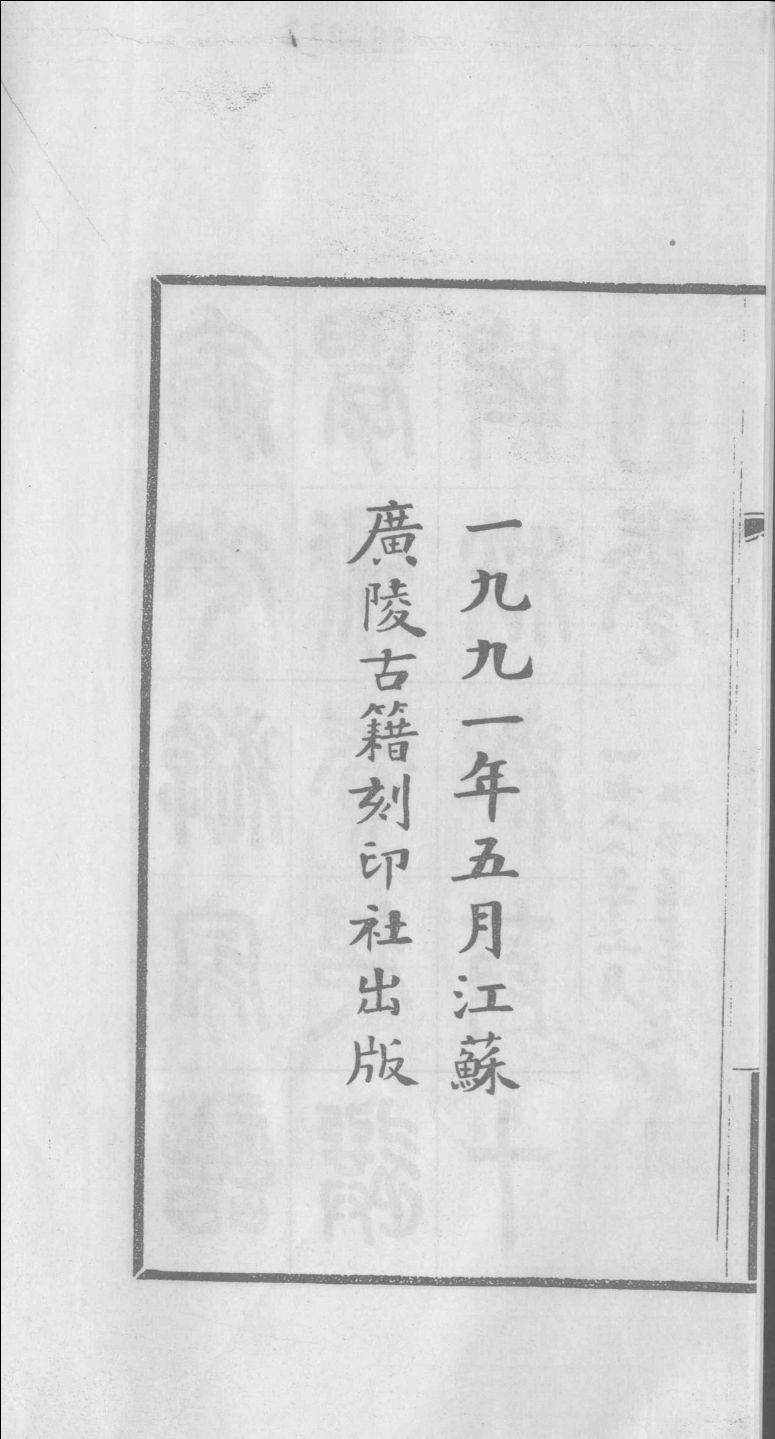 一九九一年五月江蘇
廣陵古籍刻印社出版